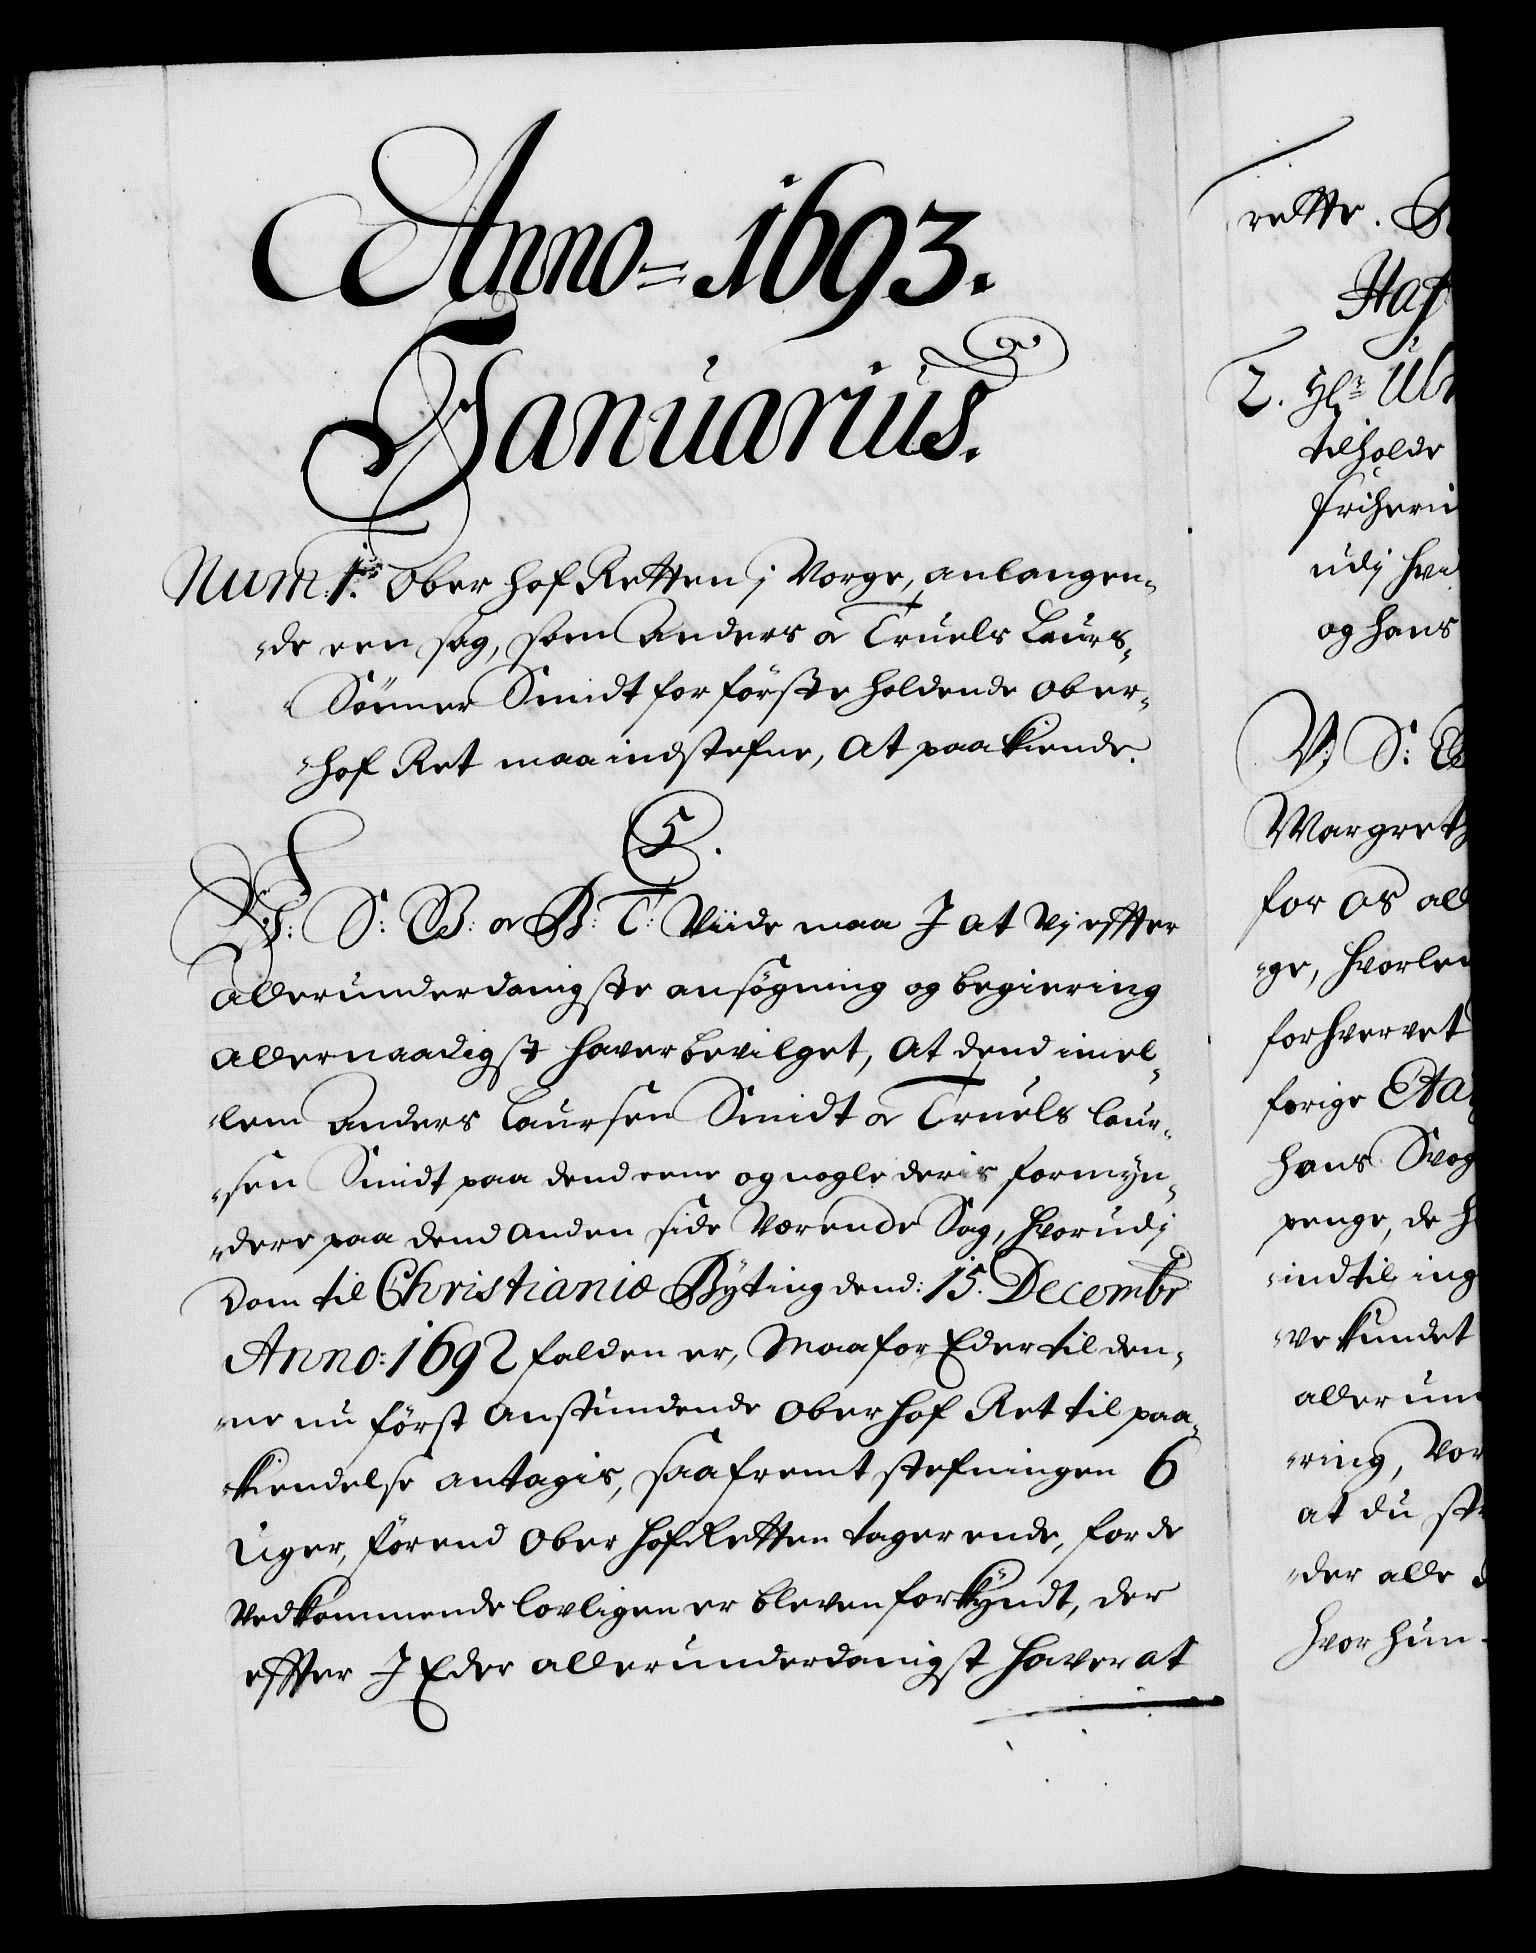 Anno 1693.
Januarius.
Num: 1. Ober Hof Retten i Norge, anlangen-
de een sag, som Anders & Truels Laurs-
Sönner Smidt for förste holdende Ober-
Hof Ret maa indstefne, At paakiende.
C5.
V: S: G: & B: T: Viide maa J at Vj effter
allerunderdanigste ansögning og begiering
allernaadigst hafver bevilget, At dend imel-
lem Anders Laursen Smidt & Truels Laur-
sen Smidt paa dend eene og nogle deris formyn-
dere paa dend anden side Værende Sag, hvorudj
Dom til Christianiæ Byting dend: 15. Decembr
Anno: 1692 falden er, Maa for Eder til den-
ne nu först anstundende Ober Hof Ret til paa-
kiendelse antagis, saafremt stefningen 6
Uger, förend Ober Hof Retten tager ende, for de
Vedkommende lovligen er bleven forkyndt, der
effter J Eder allerunderdanigst haver at
rette.
2.
tilholde
udj
og hans
V: S:
Margret
for os all
ge, hvorled
forhvervet
forige
hans Svog
penge, de h
indtil ing
ve kundet
allerun
ring, Vor
at du
der alle
hvor hun